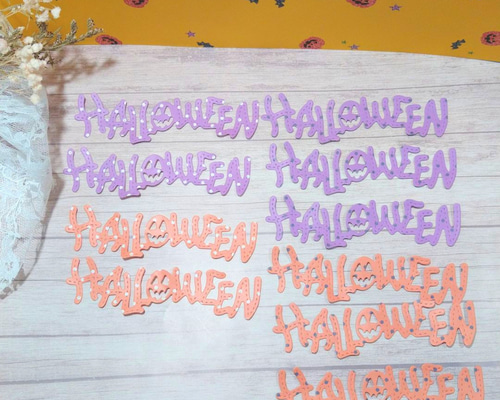 HALLOWEEN HALLOWEEN
HALLOWEEN HALLOWEEN
HALLOWEEN HALLOWEEN
HALLOWEEN HALLOWEEN
HALLOWEEN
HALLOWEEN